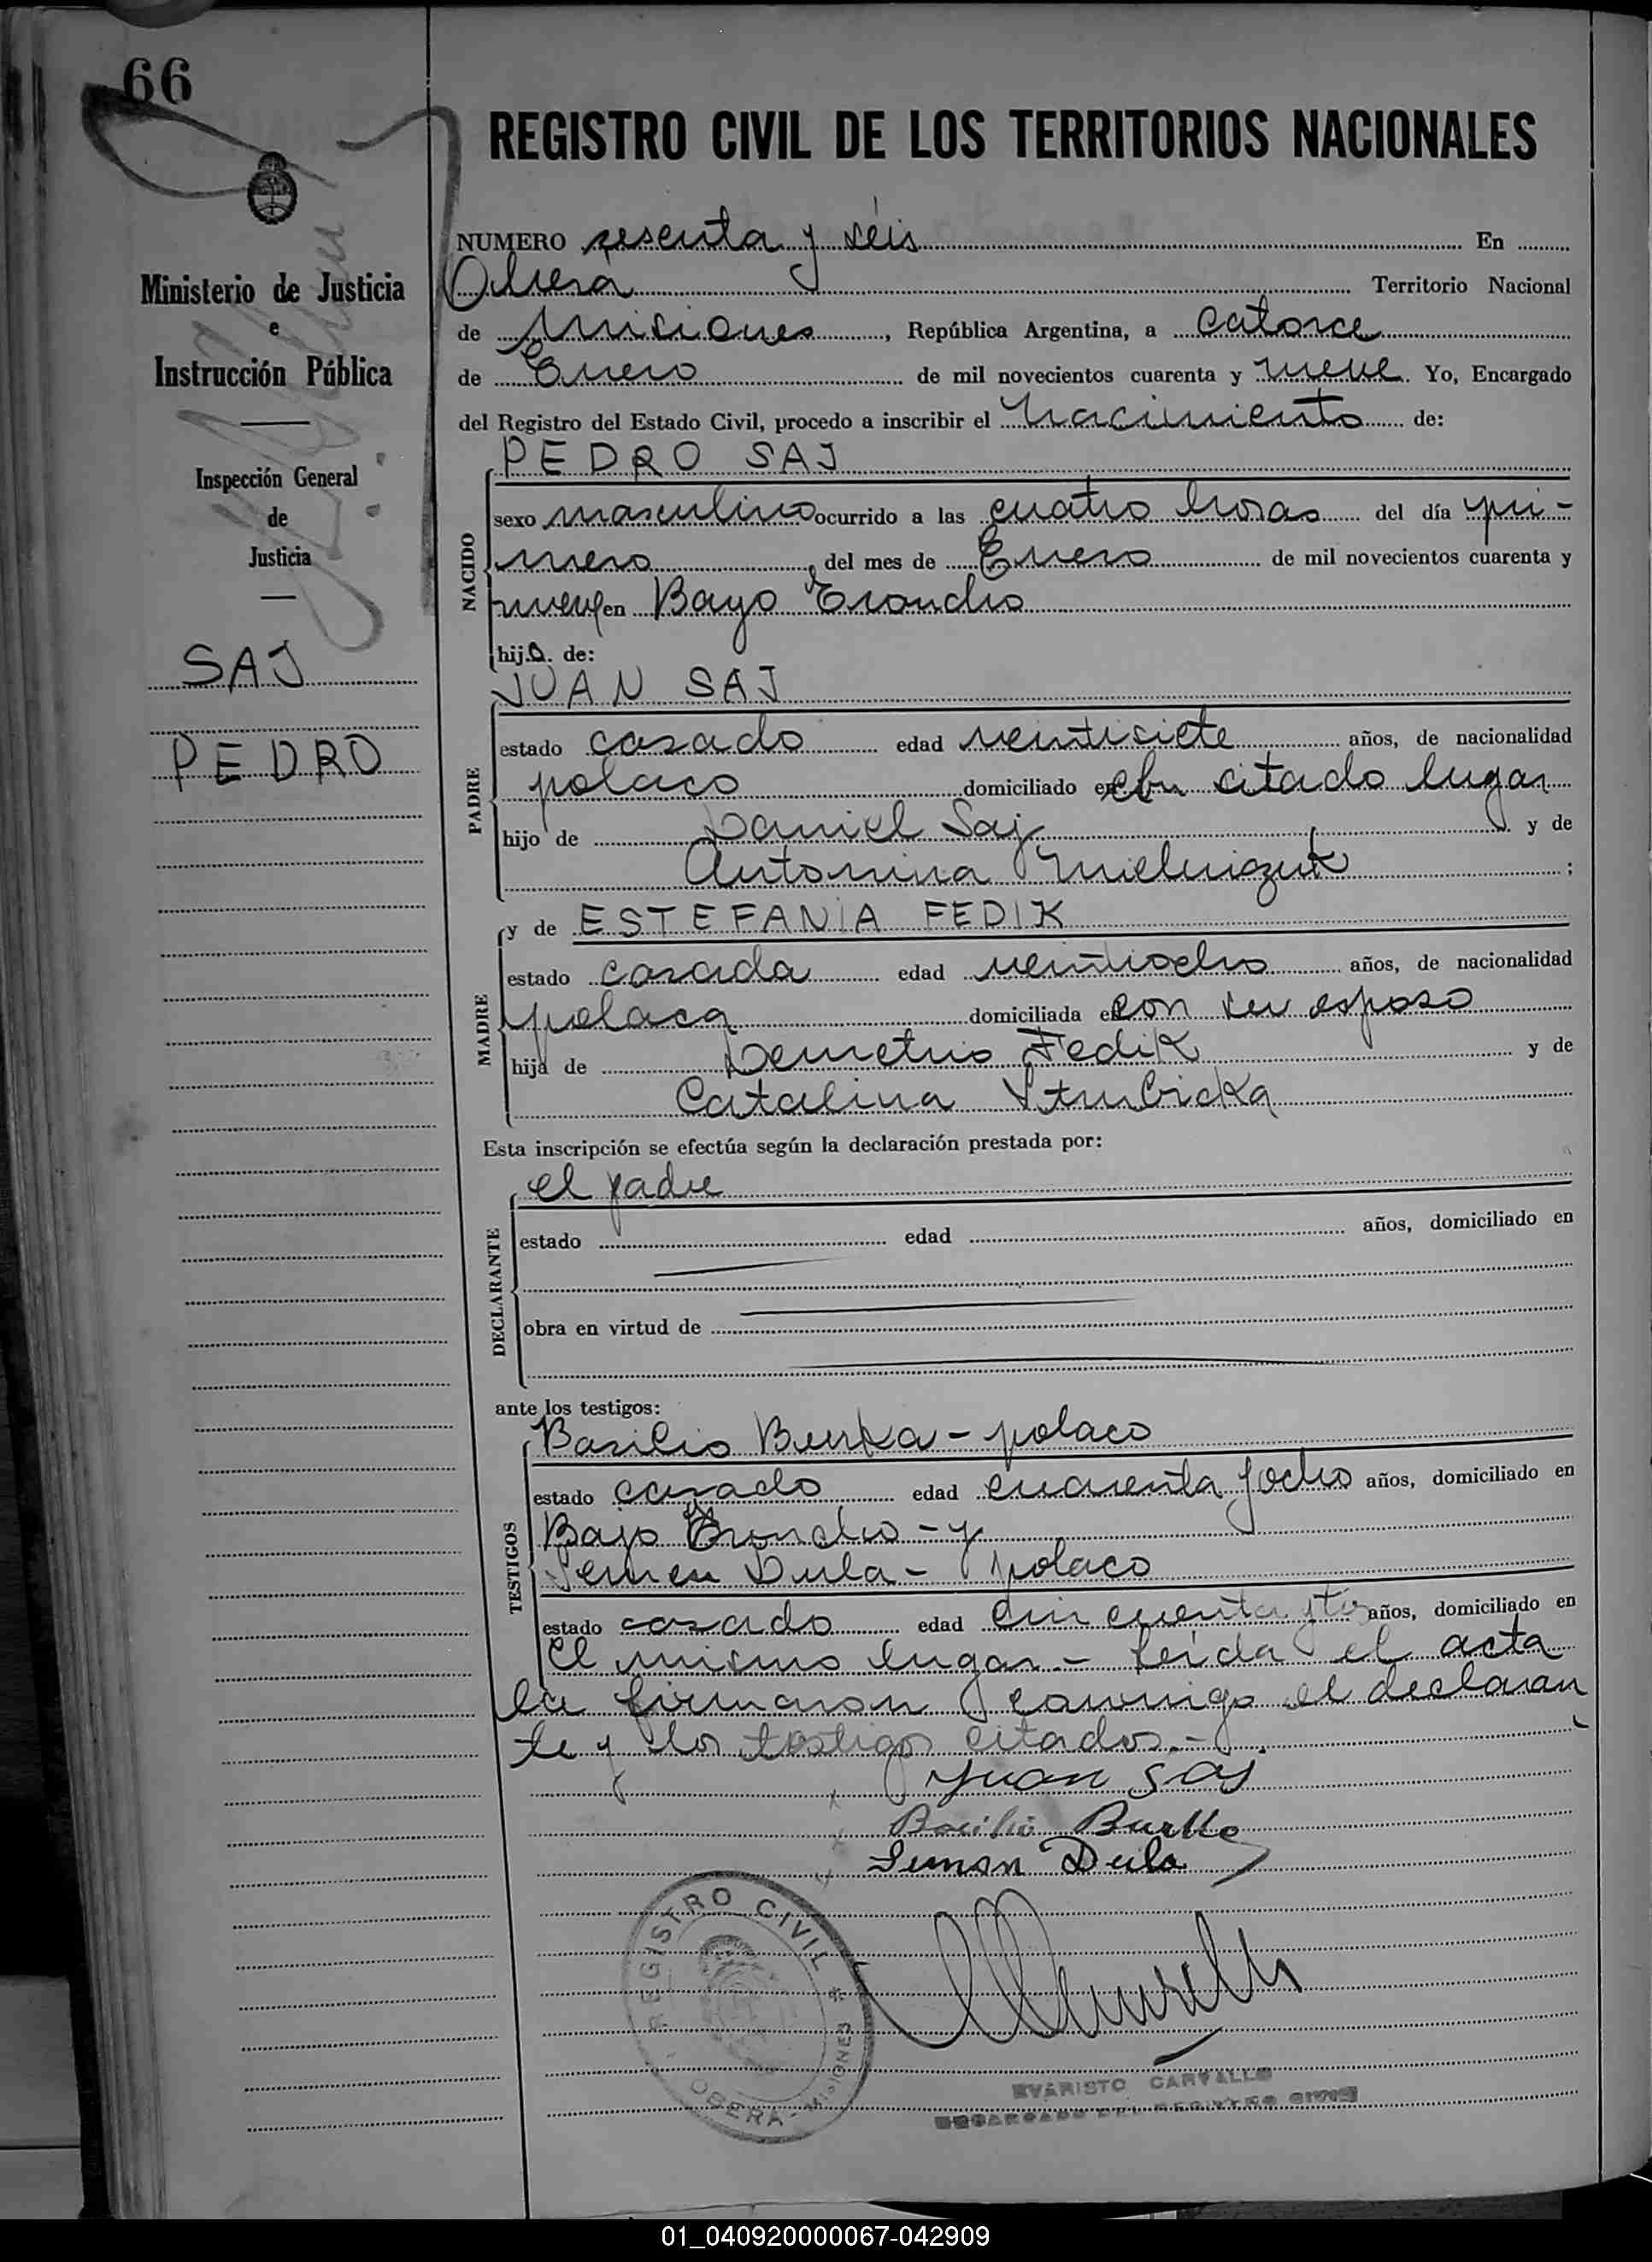 66
REGISTRO CIVIL DE LOS TERRITORIOS NACIONALES
Ministerio de Justicia
e
Instrucción Pública
Inspección General
de
Justicia
SAJ
PEDRO
NUMERO sesenta y séis En
Oberá Territorio Nacional
de Misiones, República Argentina, a catorce
de Enero de mil novecientos cuarenta y nueve. Yo, Encargado
del Registro del Estado Civil, procedo a inscribir el nacimiento de:
PEDRO SAJ
NACIDO
sexo masculino ocurrido a las cuatro horas del día pri-
mero, del mes de Enero de mil novecientos cuarenta y
nueve en Bayo
hijo. de:
JUAN SAJ
PADRE
estado casado edad veintisiete años, de nacionalidad
polaco domiciliado en citado lugar
hijo de Daniel Saj y de
Antonina ;
y de ESTEFANIA FEDIK
MADRE
estado casada edad veintiocho años, de nacionalidad
polaca domiciliada con su esposo
hija de Demetrio Fedik y de
Catalina
Esta inscripción se efectúa según la declaración prestada por:
el padre
DECLARANTE
estado edad años, domiciliado en
obra en virtud de
ante los testigos:
Basilio - polaco
TESTIGOS
estado casado edad cuarenta y ocho años, domiciliado en
Bajo - y
Dula - polaco
estado casado edad cincuenta años, domiciliado en
el mismo lugar.- Leída el acta
la firmaron conmigo el declaran
te y los testigos citados.-
Juan Saj
Dula
REGISTRO CIVIL * OBERA - MISIONES
EVARISTO CARVALLO
ENCARGADO DEL REGISTRO CIVIL
01_040920000067-042909